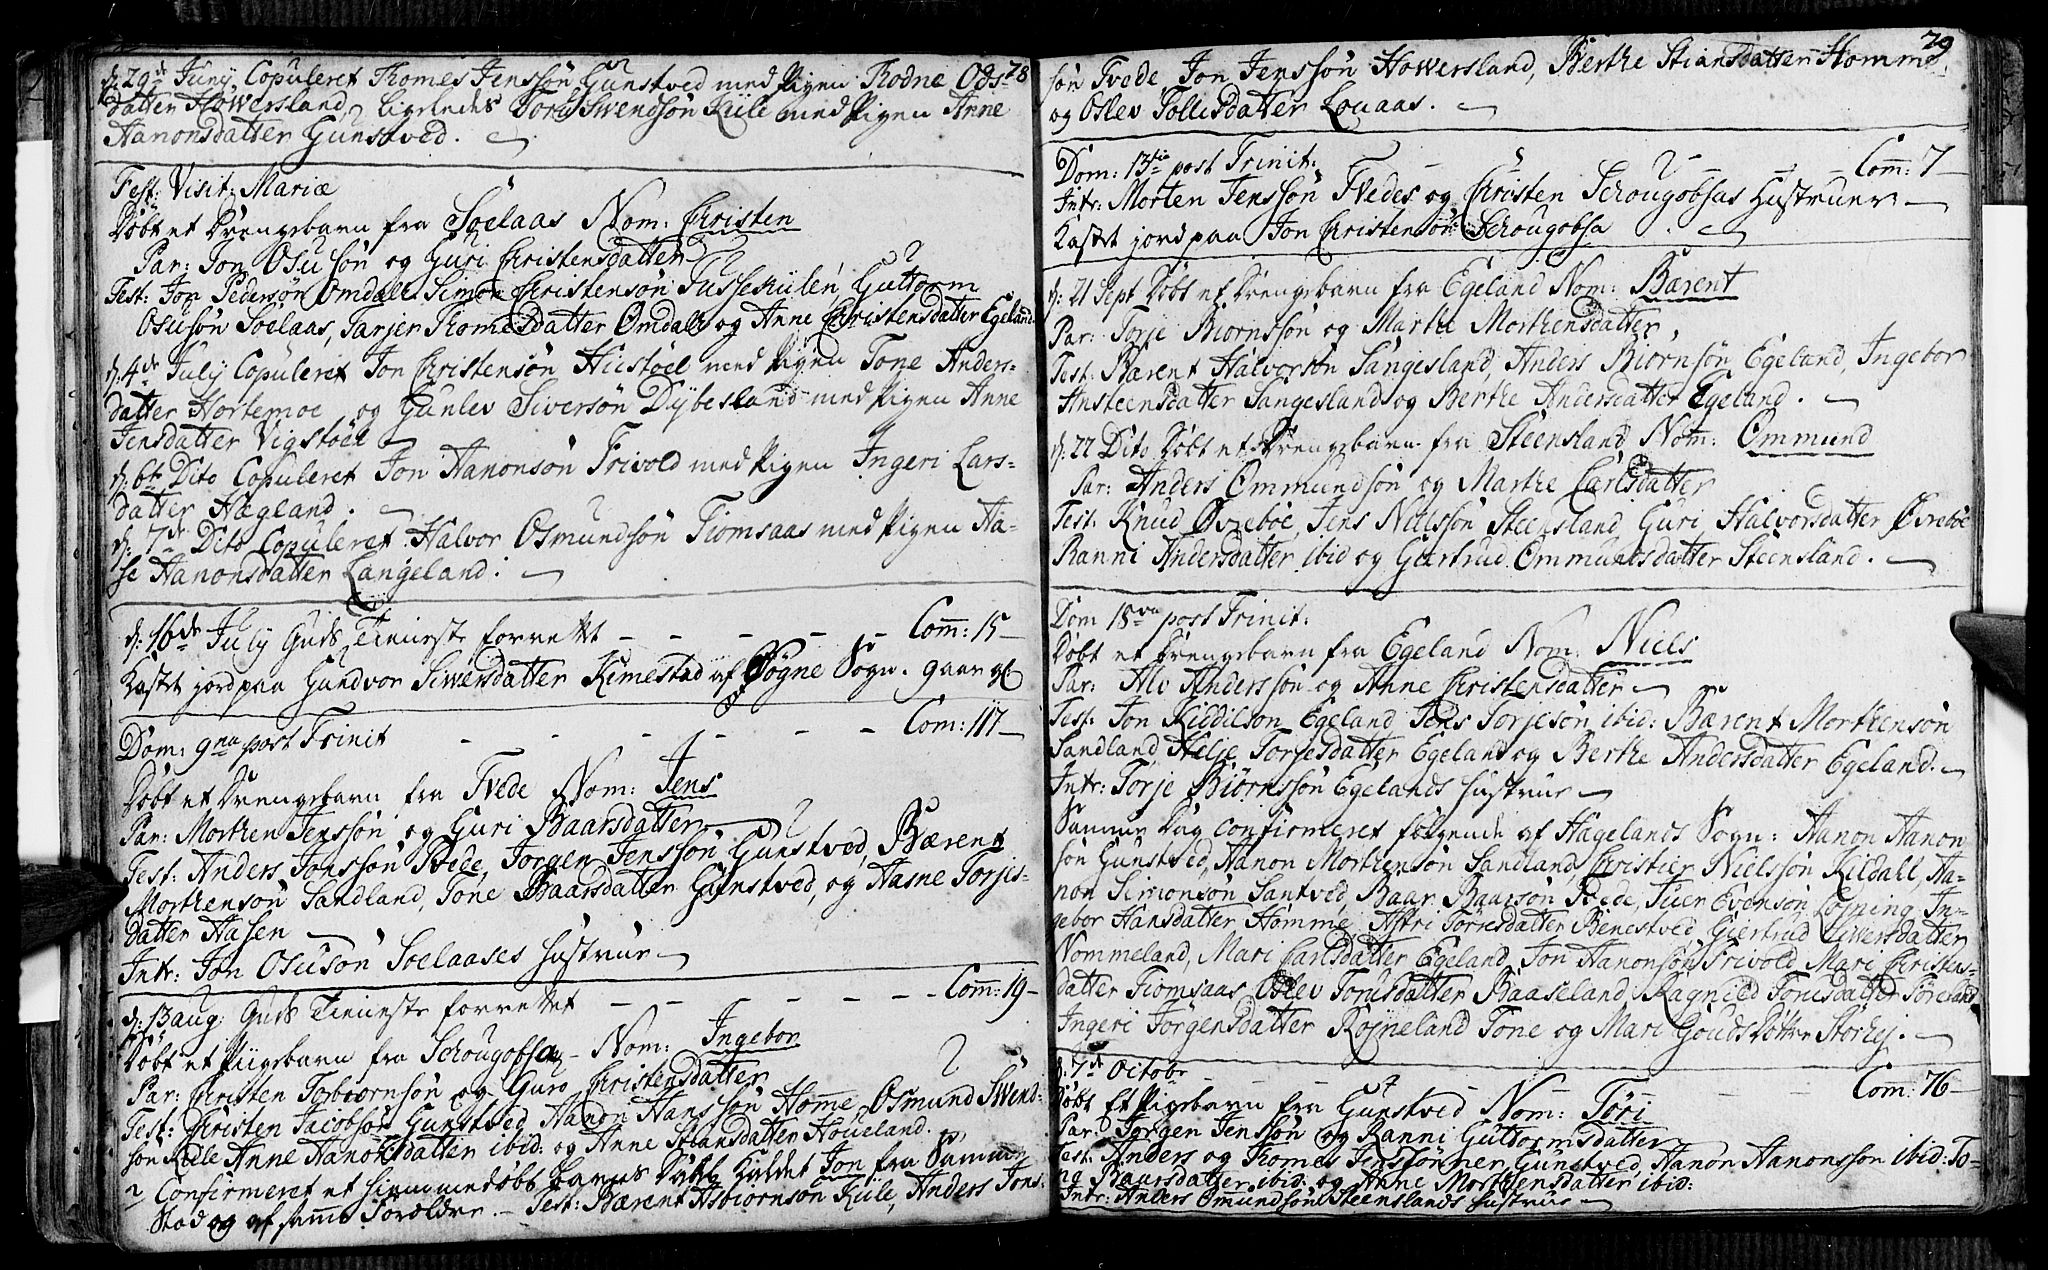 78
d: 29de Juny Copuleret Thomes Jenssøn Gunstved med Pigen Thodne Ods-
datter Høwersland, ligeledes Tore Swendsøn Kiile med Pigen Anne
Aanonsdatter Gunstved.
Fest: Visit: Mariæ
Døbt et Drengebarn fra Soelaas Nom: Christen
Par: Jon Osusøn og Guri Christensdatter
Test: Jon Pedersøn Omdal, Simon Christensøn Tusseskiilen, Guttorm
Osusøn Soelaas, Tarjer Thomesdatter Omdals og Anne Christensdatter Egeland
d: 4de July Copuleret Jon Christensøn Hiistøel med Pigen Tone Anders-
datter Hortemoe, og Gunlev Siversøn Dÿbesland med Pigen Anne
Jensdatter Vigstøel
d: 6te Dito Copuleret Jon Aanonsøn Trivold med Pigen Ingeri Lars-
datter Hægland.
d: 7de Dito Copuleret Halvor Osmundsøn Tiomsaas med Pigen Aa-
se Aanonsdatter Langeland.
d: 16de July Guds Tieneste forrettet – – – – – Com: 15
Kastet jord paa Gundvor Siwersdatter Kimestad af Søgne Sogn. 9 aar gl
Dom: 9na post Trinit – – – – – Com: 117
Døbt et Drengebarn fra Tvede Nom: Jens
Par: Morthen Jenssøn og Guri Baarsdatter
Test: Anders Jonssøn Tvede, Jørgen Jenssøn Gunstved, Bærent
Morthensøn Sandland, Tone Baarsdatter Gunstved, og Aasne Torjis-
datter Aasen
Intr: Jon Osusøn Soelaases Hustrue
d: 13 aug: Guds Tieneste forrettet – – – – – – Com: 19
Døbt et Piigebarn fra Schougobsaa – Nom: Ingebor
Par: Christen Torbiørnsøn og Guro Christensdatter
Test: Christen Jacobsøn Gunstved, Aanon Hanssøn Homme, Osmund Swend-
søn Kiile Anne Aanonsdatter ibid: og Anne Stiansdatter Houeland.
Confirmeret et hiemmedøbt Barns Daab kaldet Jon fra samme
Stad og af samme Forældre. – Test: Bærent Asbiørnsøn Kiile, Anders Jons-
29
søn Tvede Jon Jenssøn Howersland, Berthe Stiansdatter Homme
og Oslev Tollisdatter Louaas.
Dom: 13tia post Trinit: – – – – Com: 7
Intr: Morten Jenssøn Tvedes og Christen Schougobsas Hustruer
Kastet jord paa Jon Christensøn Schougobsa
d: 21 Sept Døbt et Drengebarn fra Egeland Nom: Bærent
Par: Torje Biørnssøn og Marthe Morthensdatter.
Test: Bærent Halvorsøn Sangesland, Anders Biørnsøn Egeland, Ingebor
Ansteensdatter Sangesland og Berthe Andersdatter Egeland.
d: 22 Dito Døbt et Drengebarn fra Steensland Nom: Ommund
Par: Anders Ommundsøn og Marthe Carlsdatter
Test: Knud Øvrebøe, Jens Nielsøn Steensland Guri Halvorsdatter Øvrebøe
Ranni Andersdatter ibid og Giertrud Ommundsdatter Steensland.
Dom 18va post Trinit:
Døbt et Drengebarn fra Egeland Nom: Niels
Par: Alv Anderssøn og Anne Christensdatter
Test: Jon Kiddilsøn Egeland Jens Torjesøn ibid: Bærent Morthensøn
Sandland, Helje Torjesdatter Egeland og Berthe Andersdatter Egeland.
Intr: Torje Biørnssøn Egelands Hustrue
Samme Dag confirmeret følgende af Hægelands Sogn: Aanon Aanon
søn Gunstved, Aanon Morthensøn Sandland, Christier Nielssøn Kildahl, Aa-
non Simonsøn Santved, Baar Baarsøn Tvede, Iver Evensøn Løyning In-
gebor Hansdatter Homme, Astri Torresdatter Benestved Giertrud Siwersdatter
Nommeland, Mari Carlsdatter Egeland, Jon Aanonsøn Trivold, Mari Christens-
datter Tiomsaas Oslev Torisdatter Baaseland, Ragnild Torisdatter Søreland
Ingeri Jørgensdatter Røyneland Tone og Mari Gouds Døttre Storhej.
d: 7de Octobr – – – – Com: 76
Døbt Et Pigebarn fra Gunstved Nom: Tøri
Par: Jørgen Jenssøn og Ranni Guttormsdatter
Test: Anders og Thomes Jenssønner Gunstved, Aanon Aanonssøn ibid: To-
ne Baarsdatter ibid: og Anne Morthensdatter ibid:
Intr: Anders Omundsøn Steenslands Hustrue